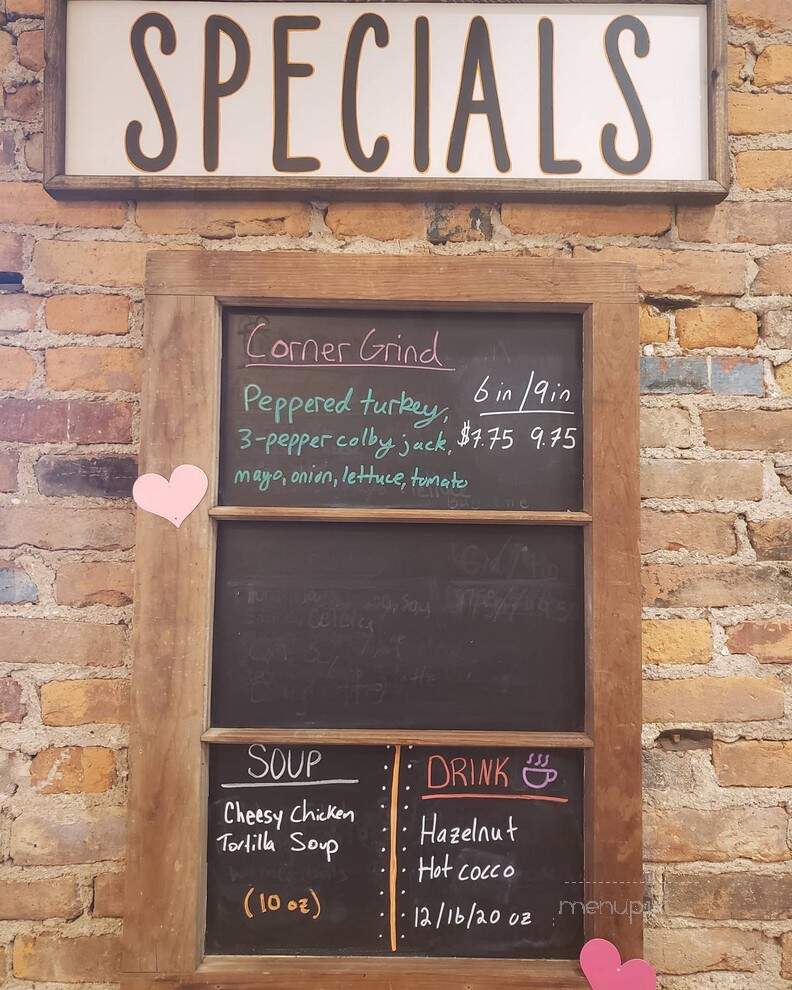 SPECIALS
Corner Grind
Peppered turkey,
6 in / 9in
3-pepper colby jack,
$7.75 9.75
mayo, onion, lettuce, tomato
SOUP
Cheesy Chicken
Tortilla Soup
(10 oz)
DRINK
Hazelnut
Hot cocco
12/16/20 oz
menupix